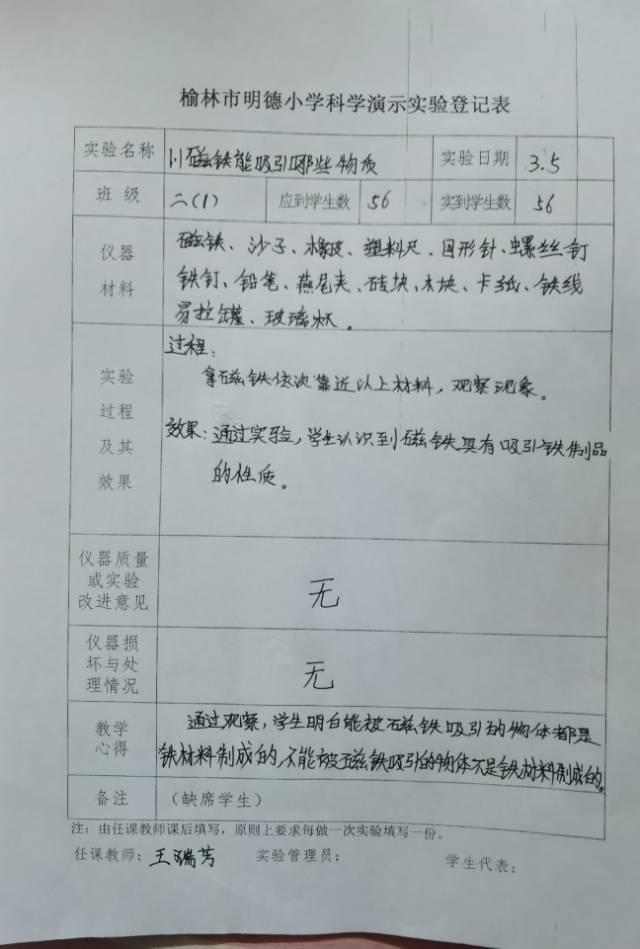 榆林市明德小学科学演示实验登记表
实验名称 1.磁铁能吸引哪些物质 实验日期 3.5
班 级 二(1) 应到学生数 56 实到学生数 56
仪器 材料 磁铁、沙子、橡皮、塑料尺、回形针、螺丝钉
铁钉、铅笔、燕尾夹、砖块、木块、卡纸、铁线
易拉罐、玻璃杯。
实验 过程 及其 效果 过程:
拿磁铁依次靠近以上材料,观察现象。
效果:通过实验,学生认识到磁铁具有吸引铁制品
的性质。
仪器质量 或实验 改进意见 无
仪器损 坏与处 理情况 无
教学 心得 通过观察,学生明白能被磁铁吸引的物体都是
铁材料制成的,不能被磁铁吸引的物体不是铁材料制成的。
备注 (缺席学生)
注:由任课教师课后填写,原则上要求每做一次实验填写一份。
任课教师:王瑞芳 实验管理员: 学生代表: